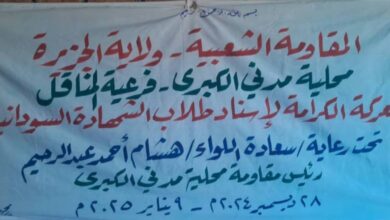 بسم الله الرحمن الرحيم
المقاومة الشعبية - ولاية الجزيرة
محلية مدني الكبرى - فرعية المناقل
معركة الكرامة لإسناد طلاب الشهادة السودانية
تحت رعاية / سعادة اللواء / هشام أحمد عبدالرحيم
رئيس مقاومة محلية مدني الكبرى
٢٨ ديسمبر ٢٠٢٤م - ٩ يناير ٢٠٢٥م